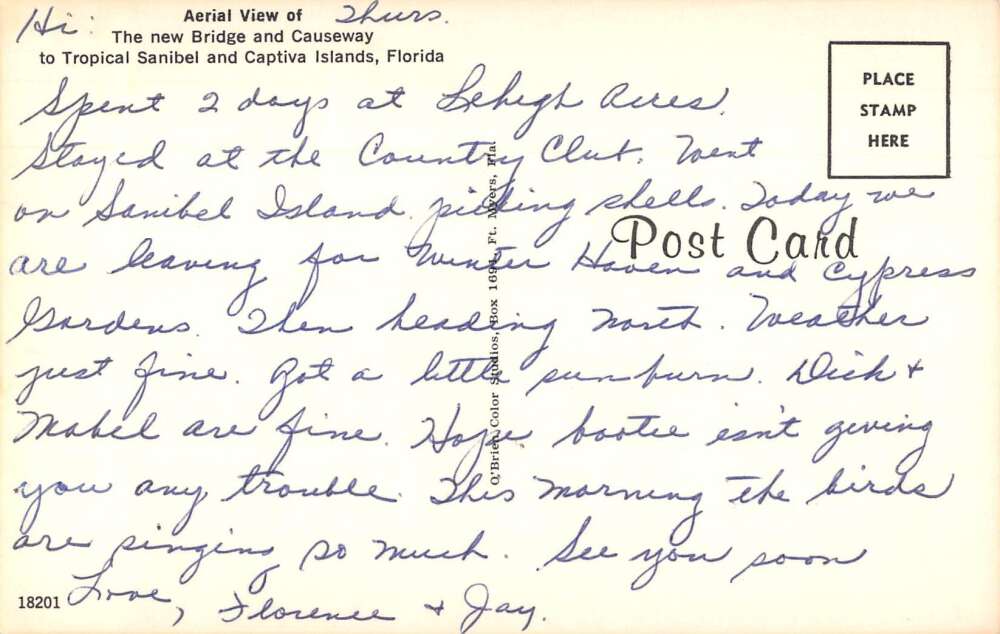 Hi: Thurs.
Aerial View of
The new Bridge and Causeway
to Tropical Sanibel and Captiva Islands, Florida
PLACE
STAMP
HERE
Spent 2 days at Lehigh Acres.
Stayed at the Country Club. Went
on Sanibel Island picking shells. Today we
Post Card
are leaving for Winter Haven and Cypress
Gardens. Then heading north. Weather
just fine. Got a little sunburn. Dick +
Mabel are fine. Hope bootie isn't giving
you any trouble. This morning the birds
are singing so much. See you soon
Love,
Florence + Jay.
O'Brien Color Studios, Box 1694, Ft. Myers, Fla.
18201